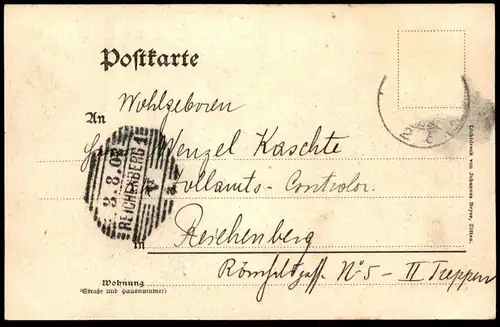 Postkarte
An
Wohlgeboren
Wenzel Kaschte
Zollamts-Controlor
in
Reichenberg
N⁰ 5 - II Treppen
Wohnung
(Straße und Hausnummer)
REICHENBERG 1
Lichtdruck von Johannes Beyer, Zittau.